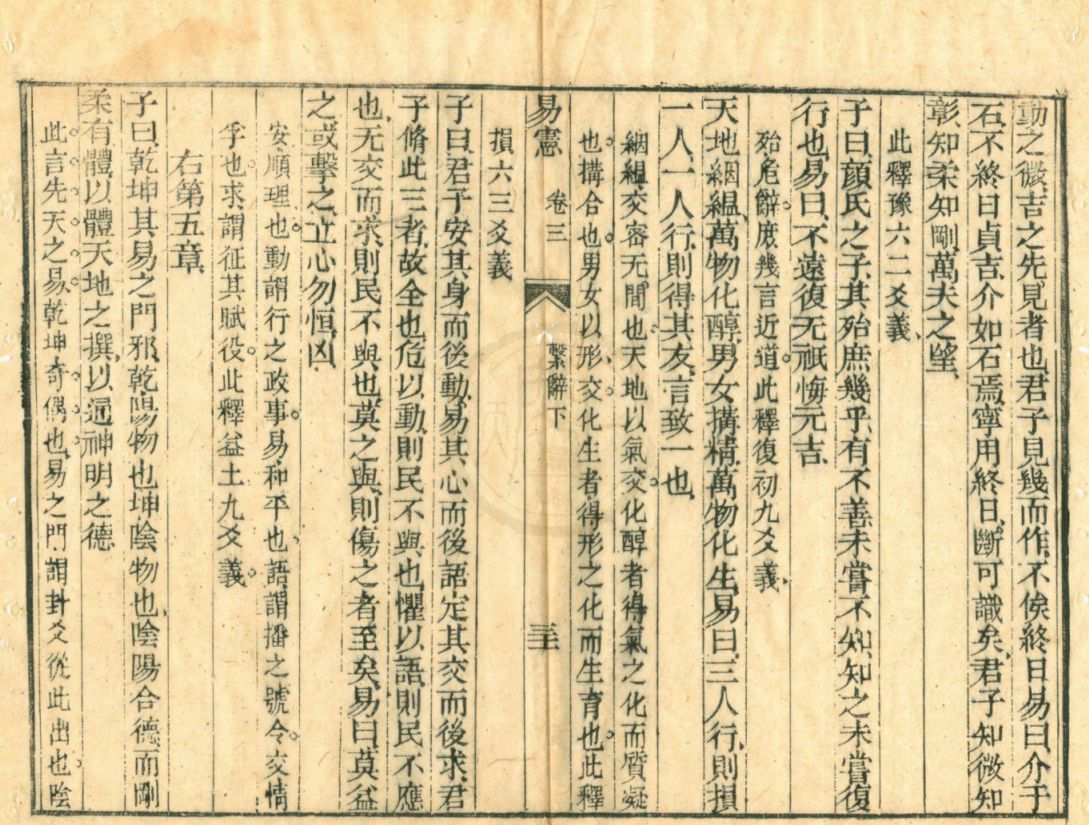 動之微、吉之先、見者也、君子見幾而作、不俟終日、易曰、介于
石、不終日、貞吉、介如石焉、寧用終日、斷可識矣、君子知微知
彰、知柔知剛、萬夫之望、
此釋豫六二爻義、
子曰、顏氏之子、其殆庶幾乎、有不善未嘗不知、知之未嘗復
行也、易曰、不遠復、无祇悔、元吉、
殆、危辭。庶幾、言近道。此釋復初九爻義、
天地絪縕、萬物化醇、男女搆精、萬物化生、易曰、三人行、則損
一人、一人行、則得其友、言致一也、
絪縕、交密无間也。天地以氣交、化醇者、得氣之化而質凝
也。搆、合也。男女以形交、化生者、得形之化而生育也。此釋
損六三爻義、
易憲 卷三 繫辭下 三十
子曰、君子安其身而後動、易其心而後語、定其交而後求、君
子脩此三者、故全也、危以動、則民不與也、懼以語、則民不應
也、无交而求、則民不與也、莫之與、則傷之者至矣、易曰、莫益
之、或擊之、立心勿恒、凶、
安、順理也。動、謂行之政事。易、和平也。語、謂播之號令。交、情
孚也。求、謂征其賦役。此釋益上九爻義。
右第五章、
子曰、乾坤其易之門邪、乾陽物也、坤陰物也、陰陽合德、而剛
柔有體、以體天地之撰、以通神明之德、
此言先天之易。乾坤奇偶也。易之門、謂卦爻從此出也。陰